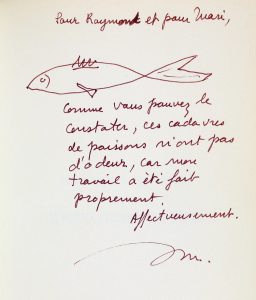 Pour Raymond et pour Mari,
Comme vous pouvez le
constater, ces cadavres
de poissons n'ont pas
d'odeur, car mon
travail a été fait
proprement.
Affectueusement.